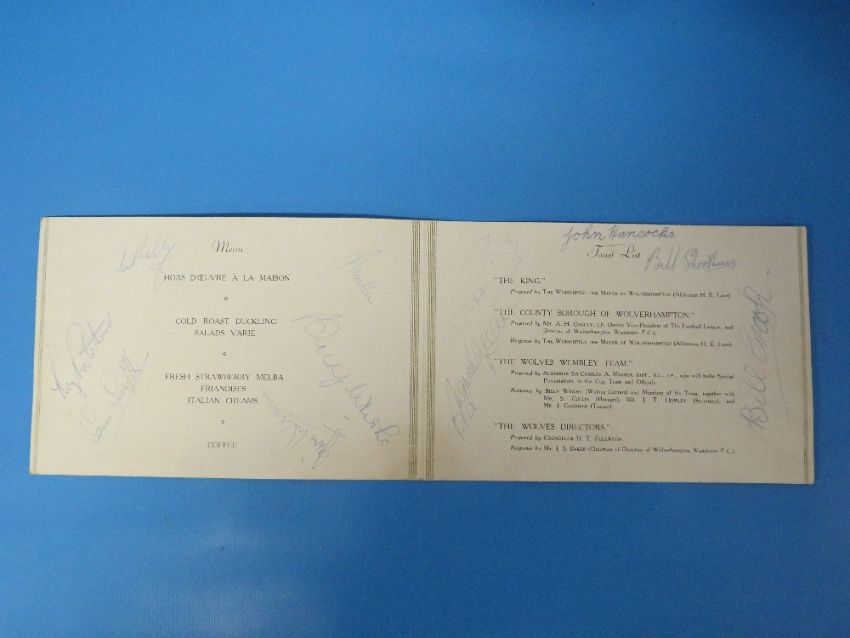 Menu
HORS D'ŒUVRE À LA MAISON
COLD ROAST DUCKLING
SALADS VARIE
FRESH STRAWBERRY MELBA
FRIANDISES
ITALIAN CREAMS
COFFEE
Mullen
Roy Pritchard
Sam Smyth
Billy Wright
John Hancocks
Toast List
Bill Shorthouse
"THE KING."
Proposed by THE WORSHIPFUL THE MAYOR OF WOLVERHAMPTON (Alderman H. E. Lane).
"THE COUNTY BOROUGH OF WOLVERHAMPTON."
Proposed by MR. A. H. OAKLEY, J.P. (Senior Vice-President of The Football League, and
Director of Wolverhampton Wanderers F.C.).
Response by THE WORSHIPFUL THE MAYOR OF WOLVERHAMPTON (Alderman H. E. Lane).
"THE WOLVES WEMBLEY TEAM."
Proposed by ALDERMAN SIR CHARLES A. MANDER, BART., who will make Special
Presentations to the Cup Team and Officials.
Response by BILLY WRIGHT (Wolves Captain) and Members of the Team, together with
MR. S. CULLIS (Manager), MR. J. T. HOWLEY (Secretary), and
MR. J. GARDINER (Trainer).
"THE WOLVES DIRECTORS."
Proposed by COUNCILLOR H. T. FULLWOOD.
Response by MR. J. S. BAKER (Chairman of Directors of Wolverhampton Wanderers F.C.).
Bill Crook